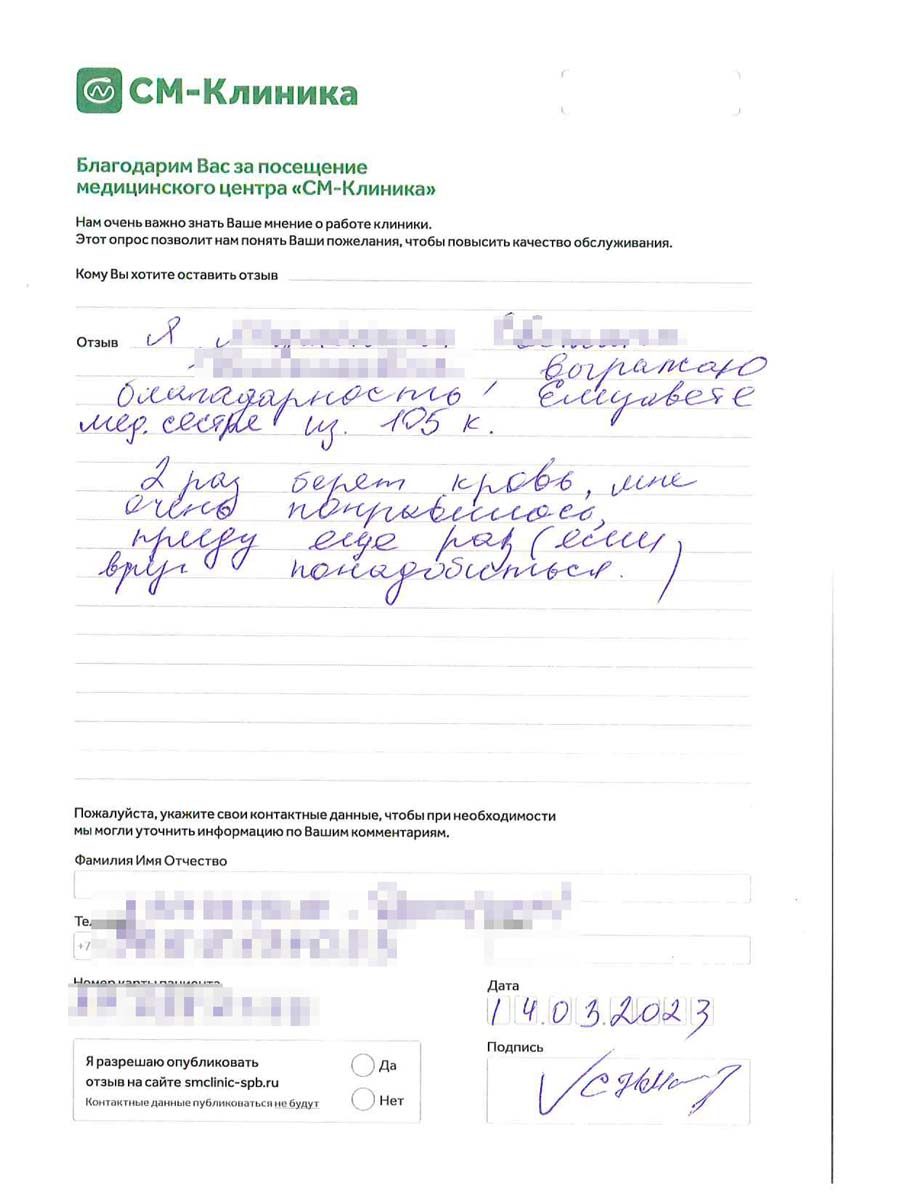 СМ-Клиника
Благодарим Вас за посещение
медицинского центра «СМ-Клиника»
Нам очень важно знать Ваше мнение о работе клиники.
Этот опрос позволит нам понять Ваши пожелания, чтобы повысить качество обслуживания.
Кому Вы хотите оставить отзыв
Отзыв Я
выражаю
благадарность Елизавете
мед. сестре из. 105 к.
2 раз берет кровь, мне
очень понравилось,
приду еще раз (если
вруг понадобиться.)
Пожалуйста, укажите свои контактные данные, чтобы при необходимости
мы могли уточнить информацию по Вашим комментариям.
Фамилия Имя Отчество
+7
Номер карты пациента
Дата
14.03.2023
Подпись
Я разрешаю опубликовать
отзыв на сайте smclinic-spb.ru
Контактные данные публиковаться не будут
Да
Нет